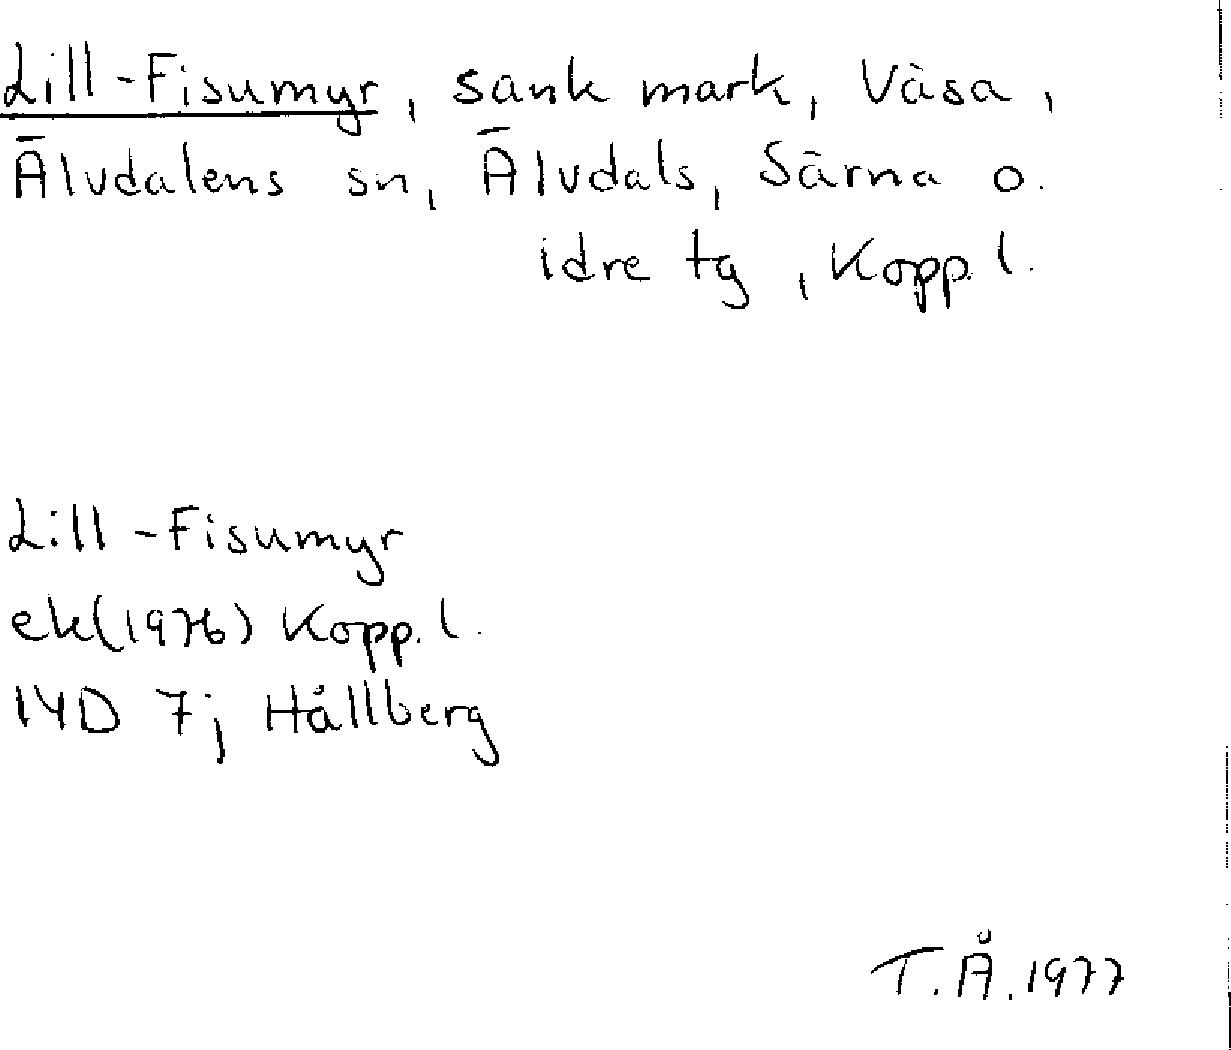 Lill-Fisumyr, sank mark, Våsa,
Älvdalens sn, Älvdals, Särna o.
idre tg, Kopp. l.
Lill-Fisumyr
ek(1976) Kopp. l.
14D 7j Hållberg
T.Å.1977